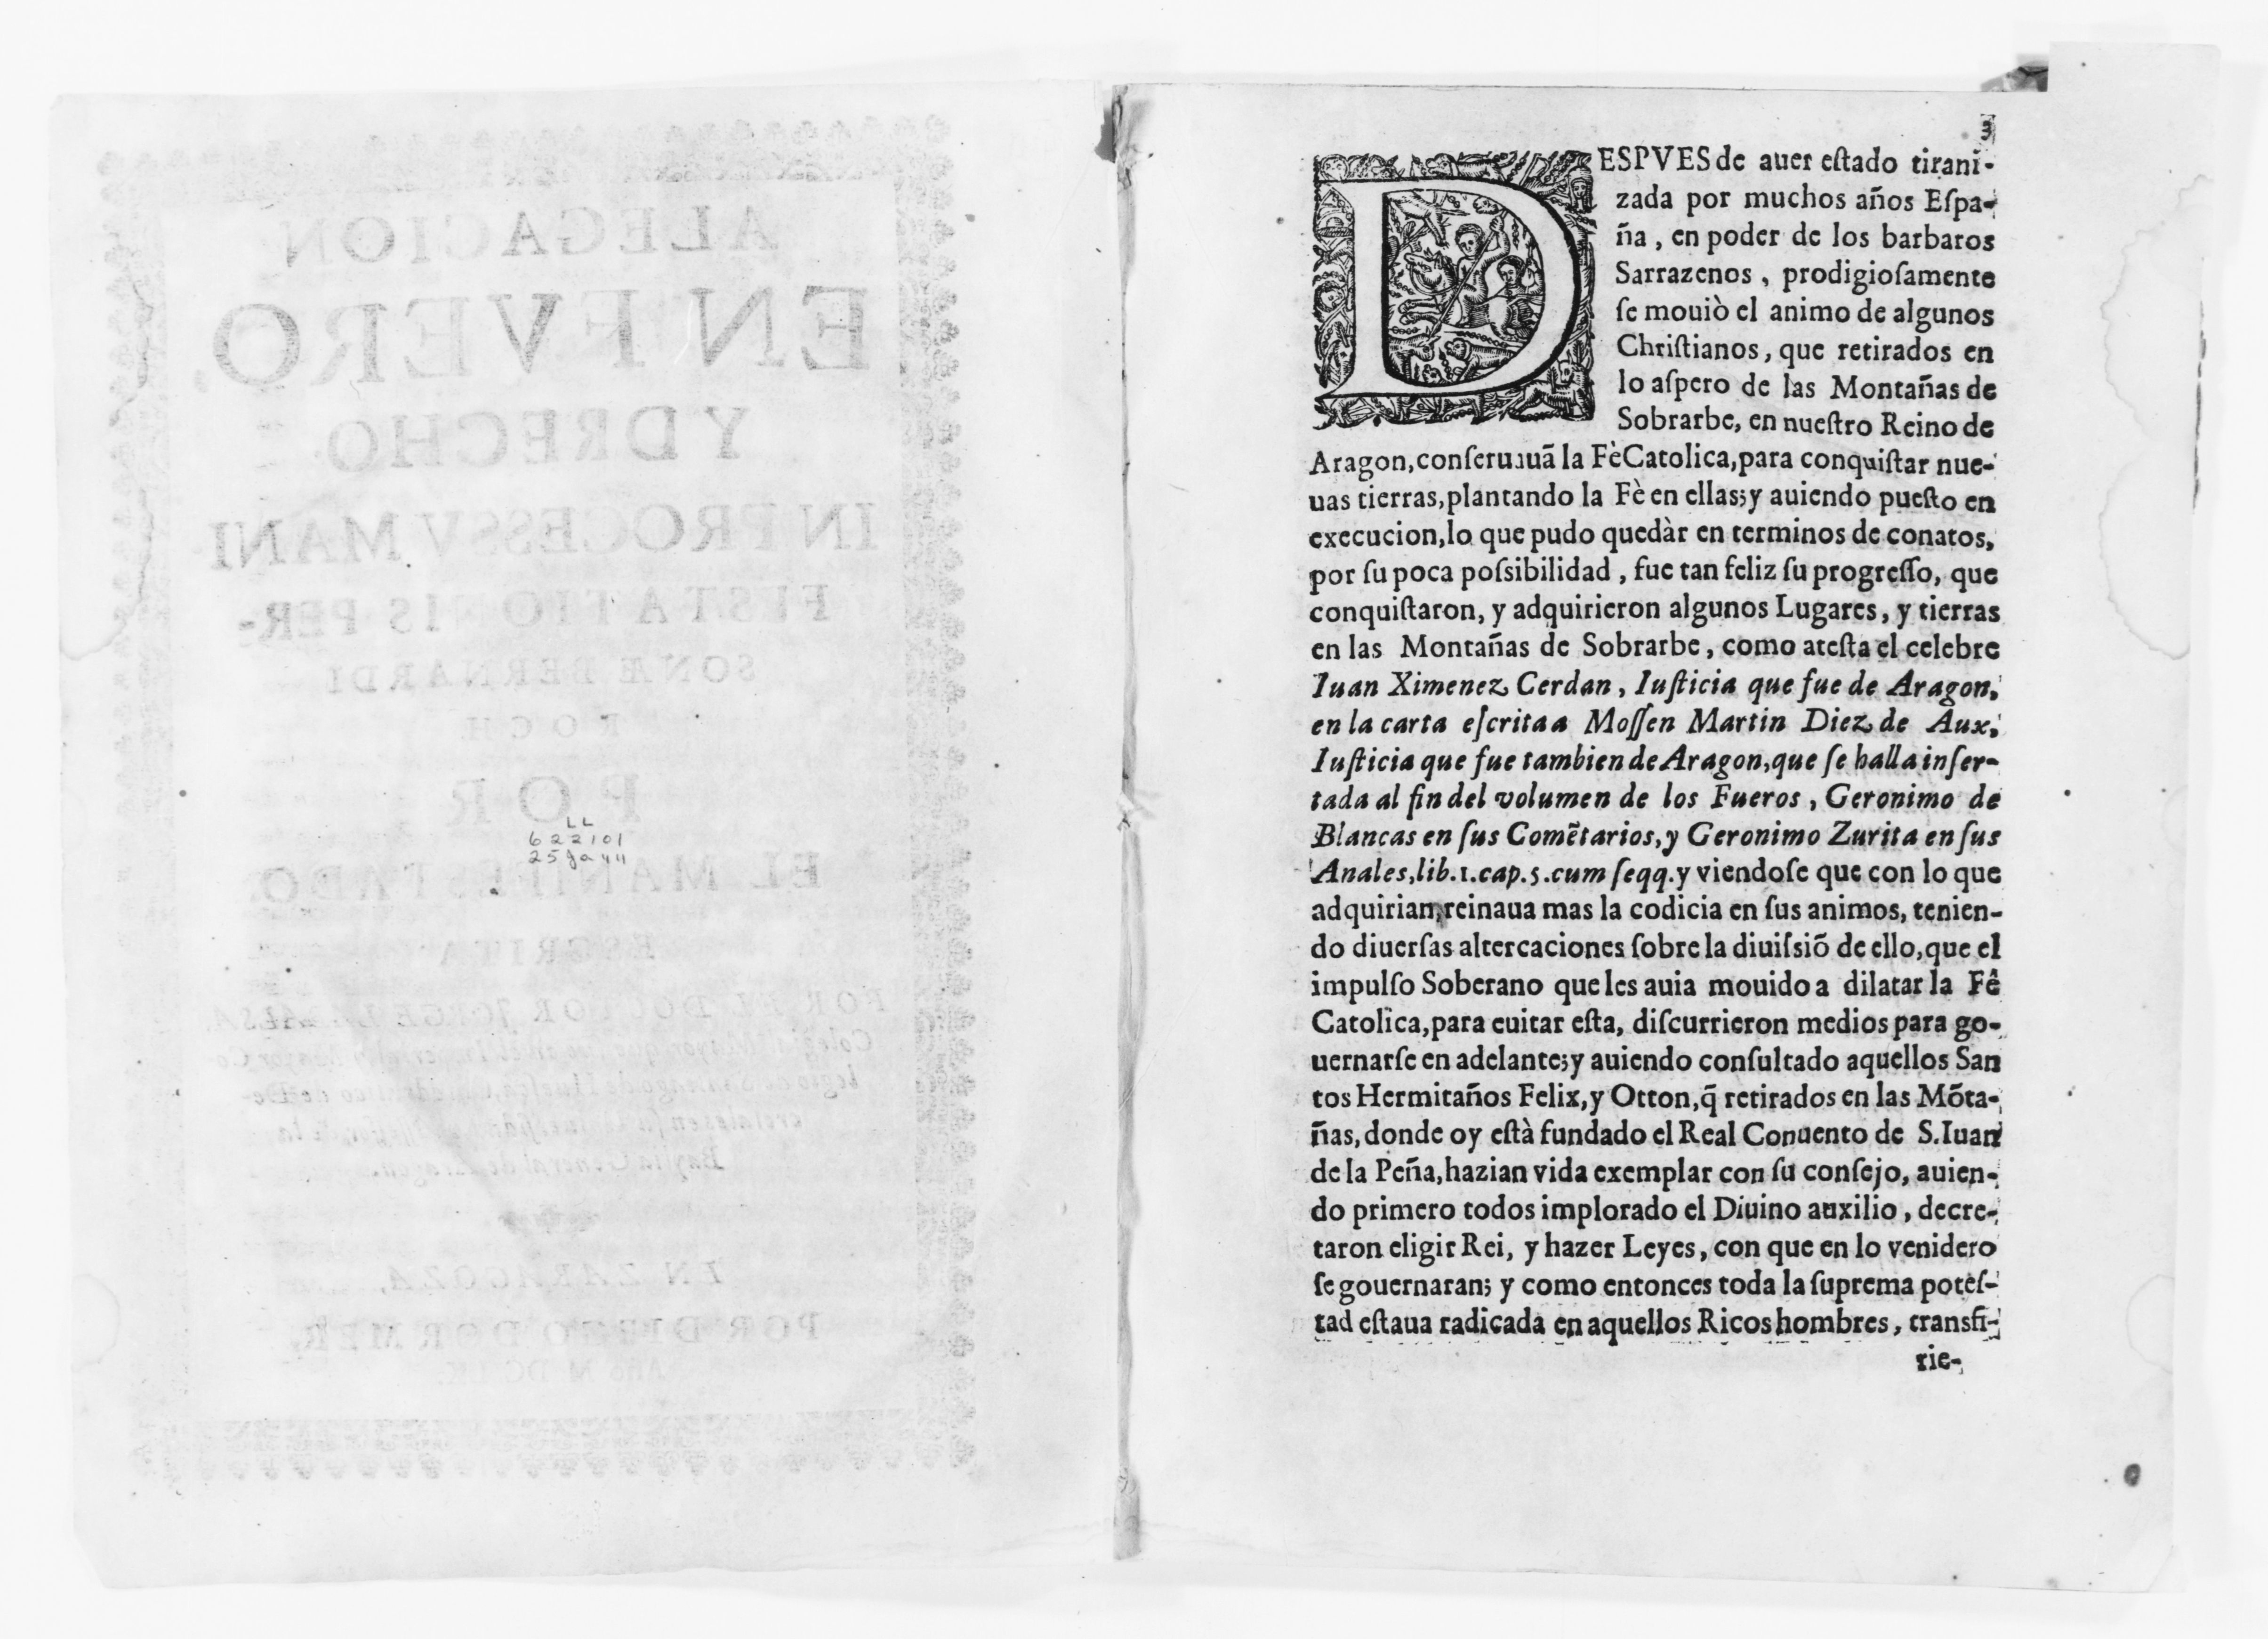 LL
622101
25 Ja 44
3
DESPVES de auer eſtado tirani-
zada por muchos años Eſpa-
ña, en poder de los barbaros
Sarrazenos, prodigioſamente
ſe mouiò el animo de algunos
Chriſtianos, que retirados en
lo aſpero de las Montañas de
Sobrarbe, en nueſtro Reino de
Aragon, conſeruauã la Fè Catolica, para conquiſtar nue-
uas tierras, plantando la Fè en ellas; y auiendo pueſto en
execucion, lo que pudo quedàr en terminos de conatos,
por ſu poca poſsibilidad, fue tan feliz ſu progreſſo, que
conquiſtaron, y adquirieron algunos Lugares, y tierras
en las Montañas de Sobrarbe, como ateſta el celebre
Iuan Ximenez Cerdan, Iuſticia que fue de Aragon,
en la carta eſcrita a Moſſen Martin Diez de Aux,
Iuſticia que fue tambien de Aragon, que ſe halla inſer-
tada al fin del volumen de los Fueros, Geronimo de
Blancas en ſus Comẽtarios, y Geronimo Zurita en ſus
Anales, lib. 1. cap. 5. cum ſeqq. y viendoſe que con lo que
adquirian, reinaua mas la codicia en ſus animos, tenien-
do diuerſas altercaciones ſobre la diuiſsiõ de ello, que el
impulſo Soberano que les auia mouido a dilatar la Fê
Catolica, para euitar eſta, diſcurrieron medios para go-
uernarſe en adelante; y auiendo conſultado aquellos San
tos Hermitaños Felix, y Otton, q̃ retirados en las Mõta-
ñas, donde oy eſtà fundado el Real Conuento de S. Iuan
de la Peña, hazian vida exemplar con ſu conſejo, auien-
do primero todos implorado el Diuino auxilio, decre-
taron eligir Rei, y hazer Leyes, con que en lo venidero
ſe gouernaran; y como entonces toda la ſuprema poteſ-
tad eſtaua radicada en aquellos Ricos hombres, transfi-
rie-